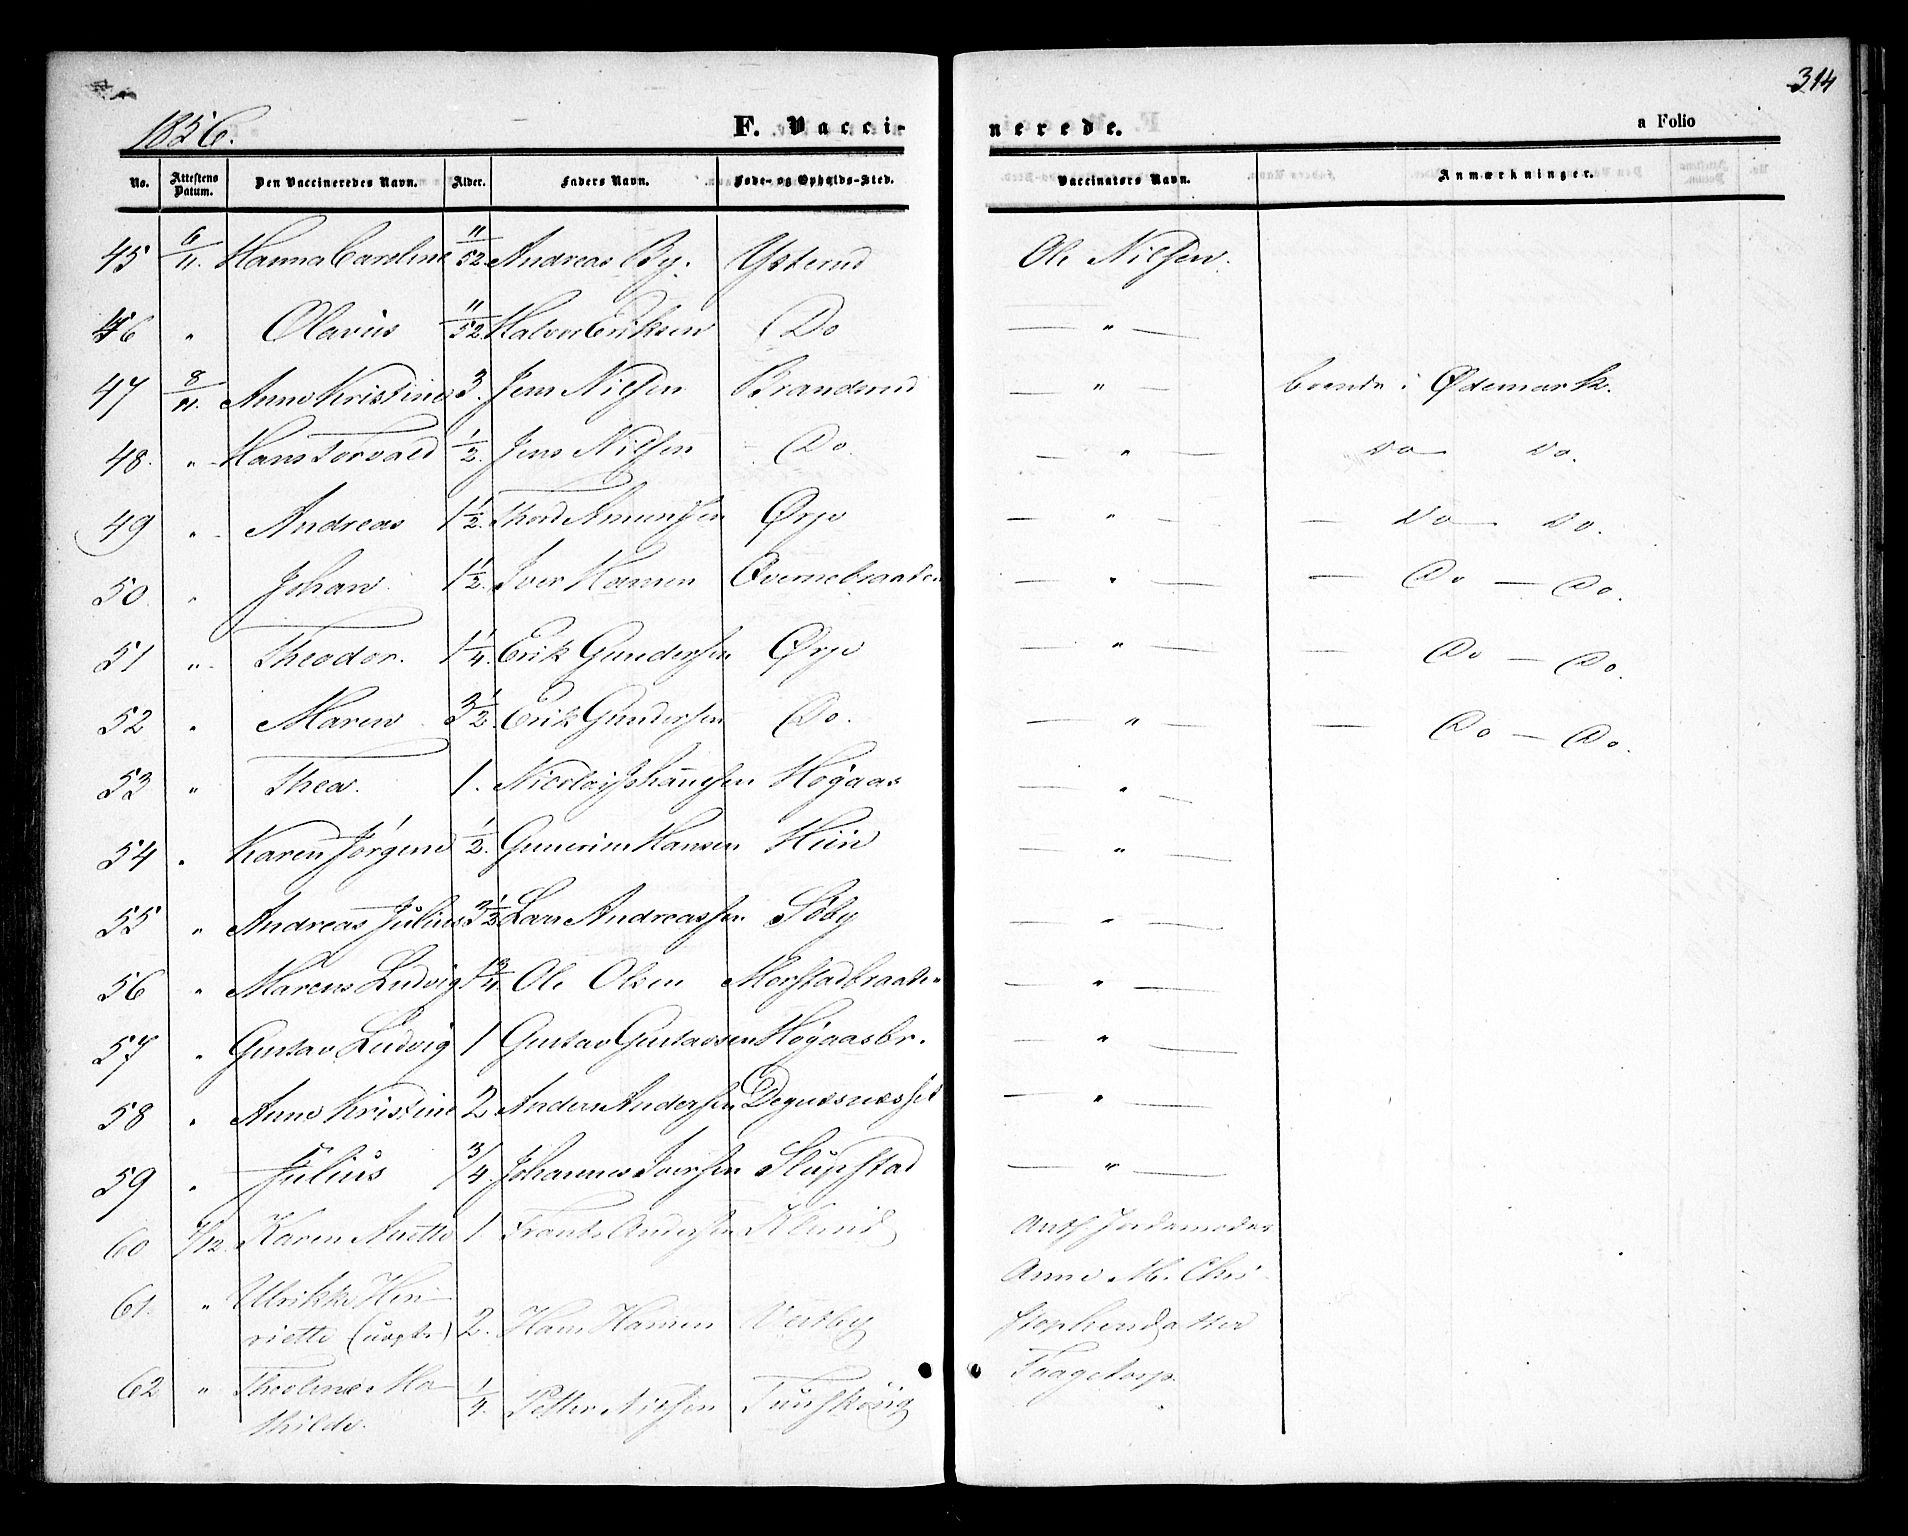 314
1856.
F. Vacci-
nerede.
a Folio
No. Attestens Datum. Den Vaccineredes Navn. Alder. Faders Navn. Føde- og Opholds-Sted. Vaccinators Navn. Anmærkninger.
45 6/11. Hanna Caroline 11/52 Andreas By. Ysterud Ole Nilsen.
46 " Olavus 11/52 Halvor Eriksen Do — " —
47 8/11. Anne Kristine 3. Jens Nilsen Branderud — " — boende i Ødemark.
48. " Hans Torvald 1/2. Jens Nilsen Do. — " — Do Do.
49 " Andreas 1 1/2. Thord Amundsen Ørje — " — — Do — Do.
50. " Johan 1 1/2. Iver Hansen — " — — Do — Do.
51 " Theodor. 1 1/4. Erik Gundersen Ørje — " — — Do — Do.
52 " Maren 3 1/2. Erik Gundersen Do. — " — — Do — Do.
53 " Thea. 1. Nicolai Johannsen Høgaas — " —
54 " Karen Jørgine 1/2. Hansen Hiin — " —
55 " Andreas Julius 3 1/2 Lars Andreassen Søby — " —
56 " Marcus Ludvig 1 3/4. Ole Olsen — " —
57 " Gustav Ludvig 1 Gustav Gustavsen Høgaasbr. — " —
58 " Anne Kristine 2 Anders Andersen Degnesnesset — " —
59 " Julius 3/4. Johannes Iversen Slupstad — " —
60 /12. Karen Anette 1 Frants Andersen Klund Auth Jordemoder
61. " Ulrikke Hen- Anne M. Chri-
riette (uægte) 2. Hans Hansen Vestby stophersdatter
62 " Theoline Ma- 1/4. Petter Nielsen Taagetorp.
thilde.